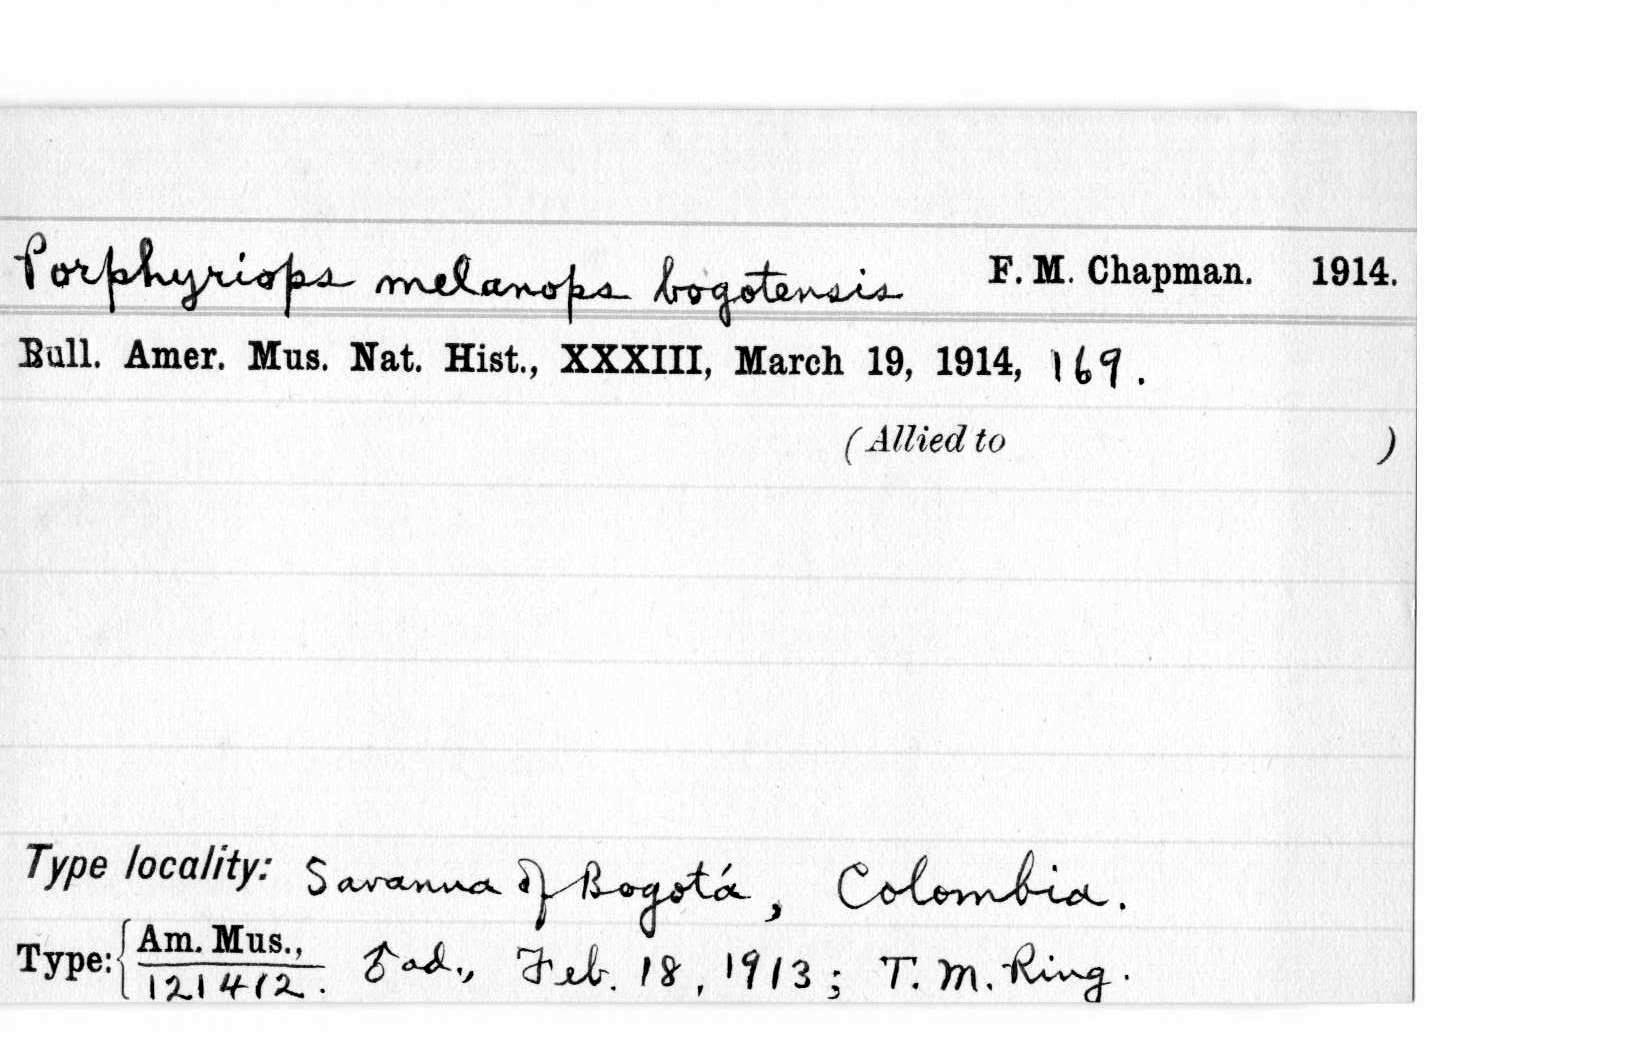 Porphyriops melanops bogotensis F. M. Chapman. 1914.
Bull. Amer. Mus. Nat. Hist., XXXIII, March 19, 1914, 169.
(Allied to )
Type locality: Savanna of Bogotá, Colombia.
Type: Am. Mus., 121412. ♂ad., Feb. 18, 1913; T. M. Ring.